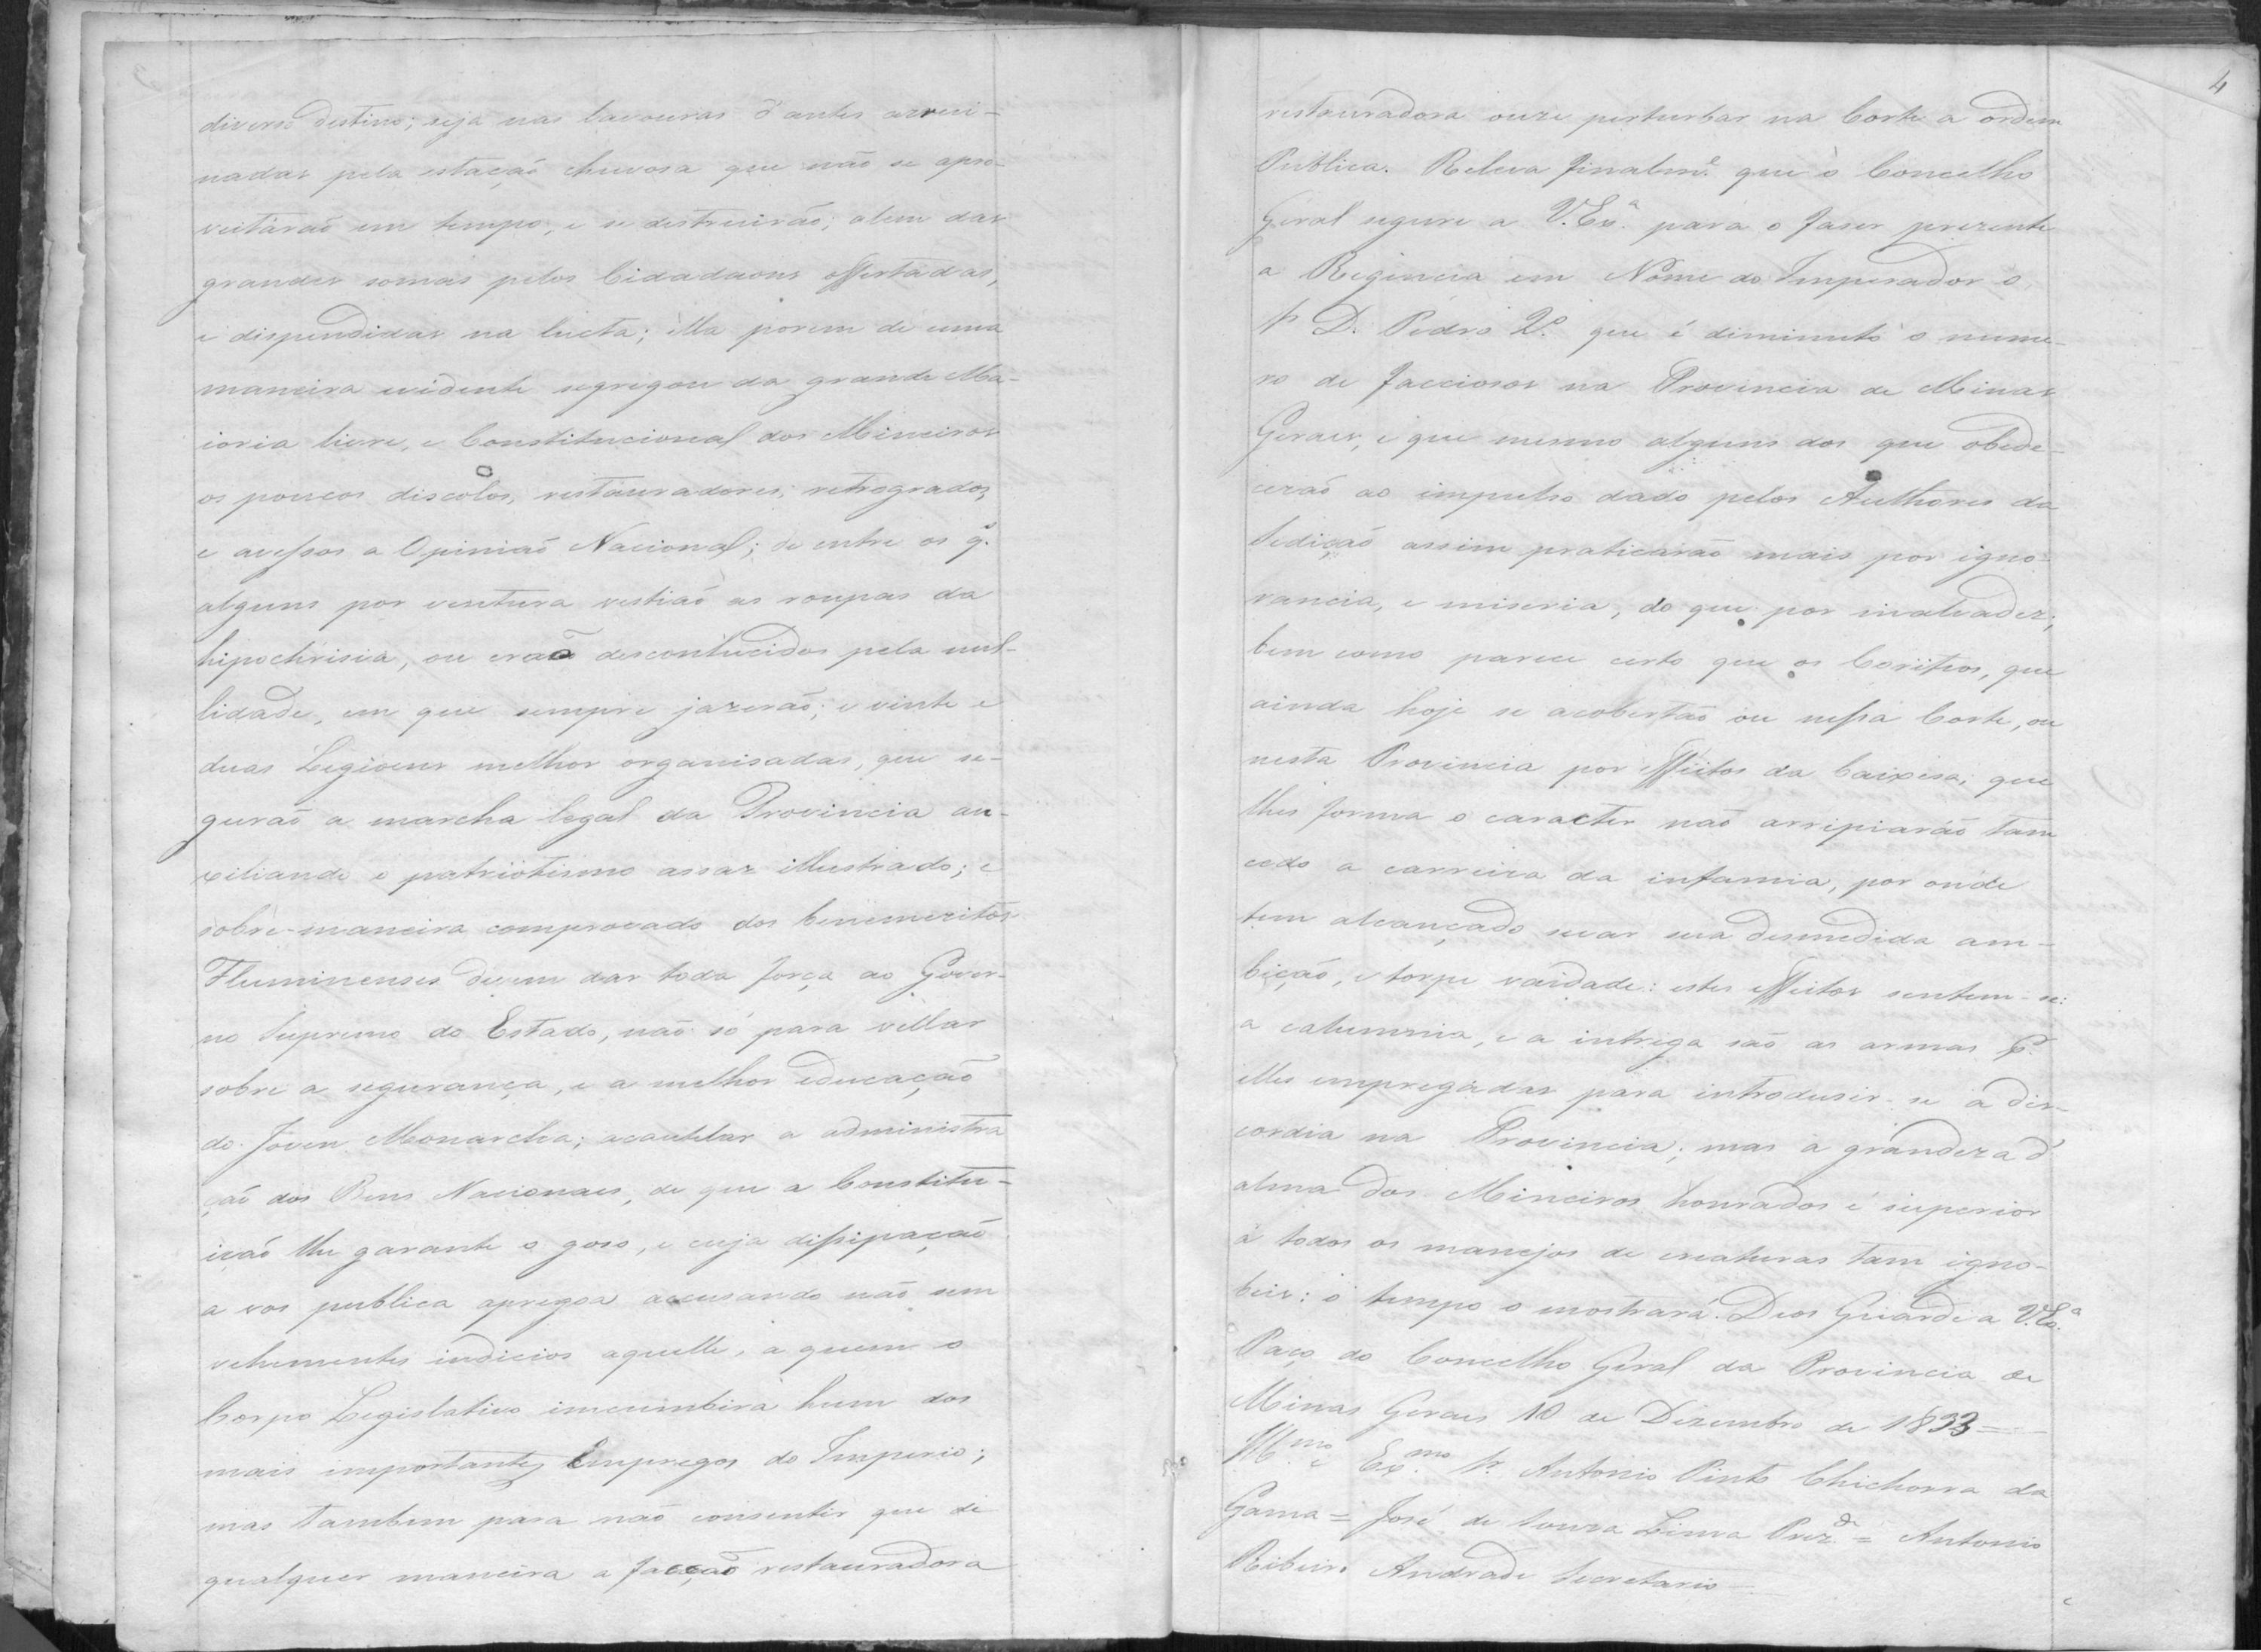 diverso destino; seja nas lavouras d'antes arrui-
nadas pela estação chuvosa que não se apro-
veitárão em tempo, e se destruirão; alem das
grandes somas pelos Cidadaons offertadas,
e dispendidas na lucta; Ella porem de uma
maneira evidente segregou da grande Ma-
ioria livre, e Constitucional dos Mineiros
os poucos discolos, restauradores, retrogrados,
e avessos a Opinião Nacional; de entre os q.
alguns por ventura vestião as roupas da
hipochrisia, ou erão desconhecidos pela nul-
lidade, em que sempre jazerão; e vinte e
duas Legioens melhor organisadas, que se-
gurão a marcha legal da Provincia au-
xiliando o patriotismo assaz illustrado; e
sobre-maneira comprovado dos benemeritos
Fluminenses devem dar toda força ao Gover-
no Supremo do Estado, não só para vellar
sobre a segurança, e a melhor educação
do Joven Monarcha; acautelar a administra
ção dos Bens Nacionaes, de que a Constitu-
ição lhe garante o goso, e cuja dissipação
a vos publica apregoa accusando não sem
vehementes indicios aquelle, a quem o
Corpo Legislativo incumbira hum dos
mais importantes Empregos do Imperio;
mas tambem para não consentir que de
qualquer maneira a facção restauradora
4
restauradora ouze perturbar na Corte a ordem
Publica. Releva finalm.e que o Concelho
Geral segure a V. Ex.a para o faser prezente
a Regencia em Nome do Imperador o
Sr D. Pedro 2.o que é diminuto o nume-
ro de facciosos na Provincia de Minas
Geraes, e que mesmo alguns dos que obede-
cerão ao impulso dado pelos Authores da
Sedição assim praticarão mais por igno-
rancia, e miseria, do que por malvadez;
bem como parece certo que os Corifeos, que
ainda hoje se acobertão ou nessa Corte, ou
nesta Provincia por effeitos da baixesa, que
lhes forma o caracter não arripiarão tam
cedo a carreira da infamia, por onde
tem alcançado sua desmedida am-
bição, e torpe vaidade: estes effeitos sentem-se:
a calumnia, e a intriga são as armas P.
elles empregadas para introdusir-se a dis-
cordia na Provincia; mas a grandeza d'
alma dos Mineiros honrados é superior
á todos os manejos de creaturas tam igno-
beis: o tempo o mostrará. Deos Guarde a V. Ex.a
Paço do Concelho Geral da Provincia de
Minas Geraes 10 de Dezembro de 1833 =
Ill.mo e Ex.mo Sr. Antonio Pinto Chichorra da
Gama = José de Souza Lima Prez.de = Antonio
Ribeiro Andrade Secretario